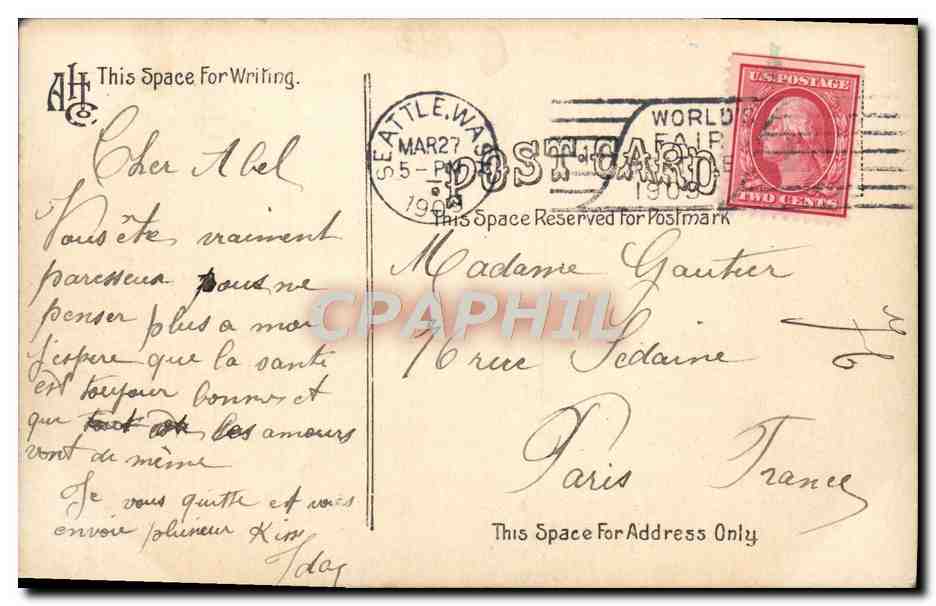 AHCo.
This Space For Writing.
Cher Abel
Vous ête vraiment
paresseux pous ne
penser plus a moi
J'espere que la santé
est toujour bonnes et
que les amours
vont de même
Je vous quitte et vous
envoie plusieur Kiss
Ida
SEATTLE, WASH.
MAR 27
5 - PM
190
WORLD'S
FAIR
1909
U.S. POSTAGE
TWO CENTS
POST CARD
This Space Reserved for Postmark
Madame Gautier
rue Sedaine
Paris France
This Space For Address Only
CPAPHIL